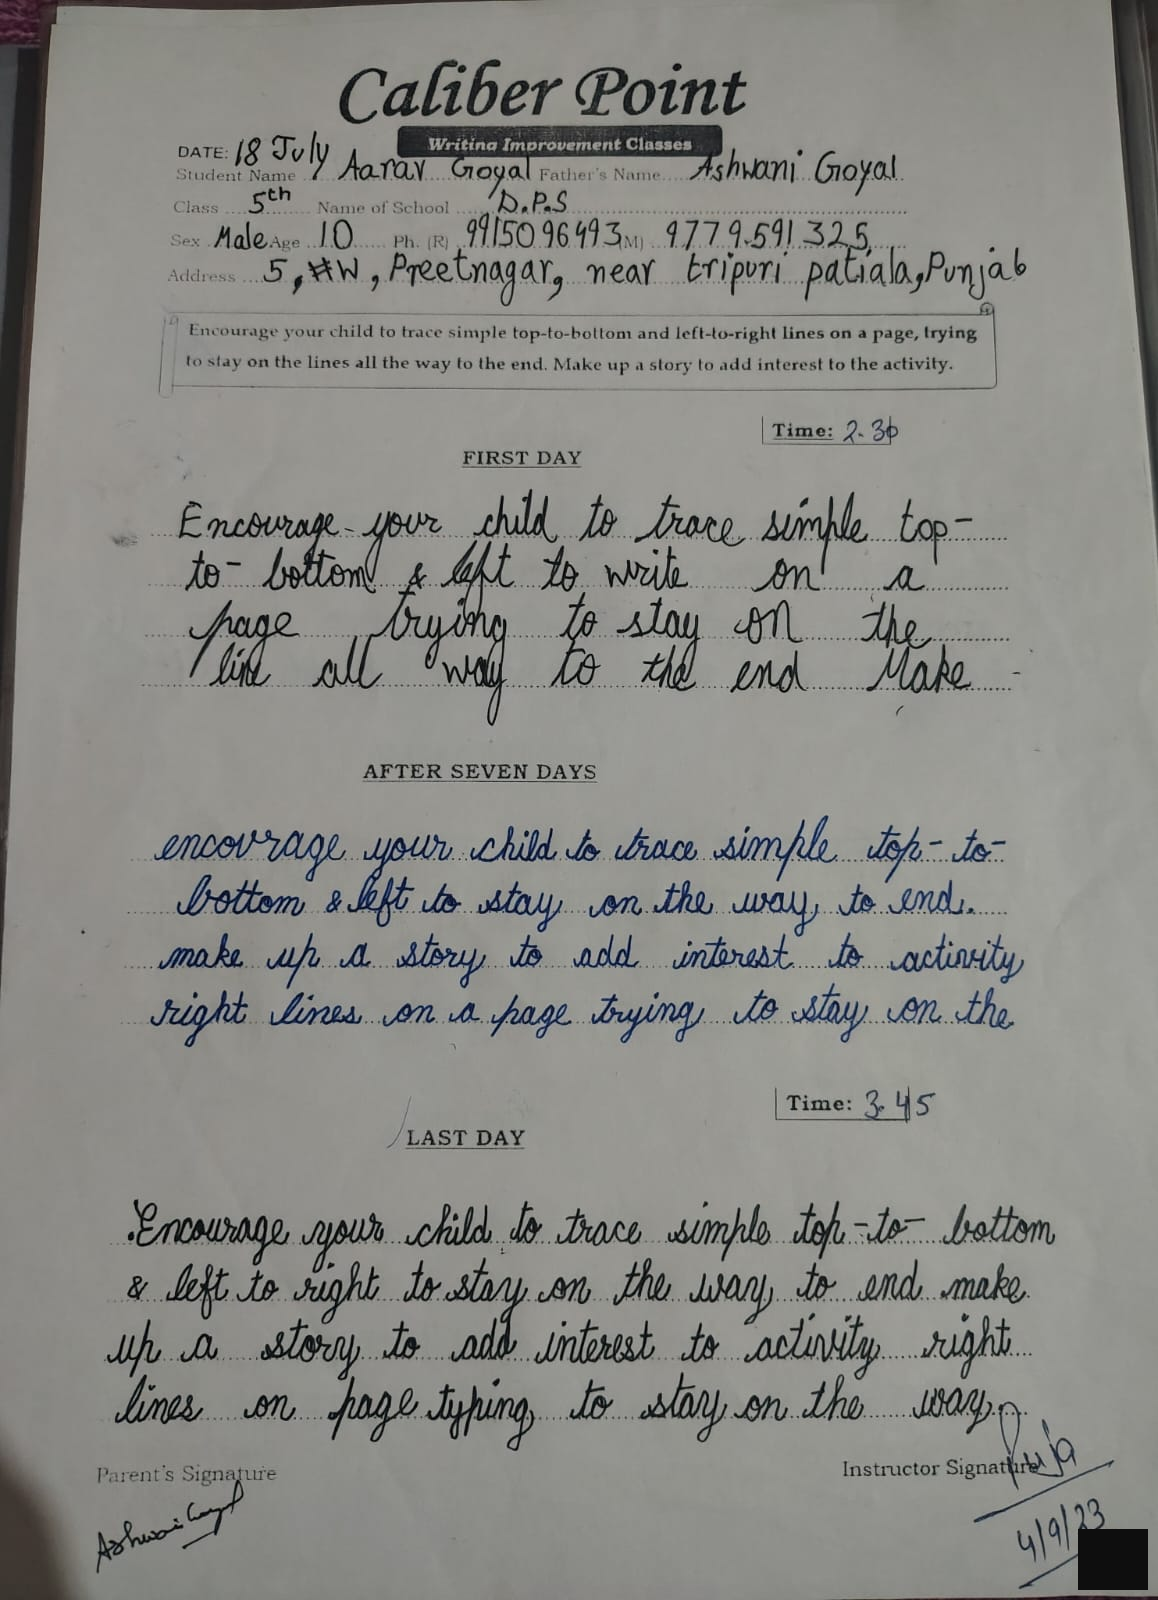 Caliber Point
Writing Improvement Classes
DATE: 18 July
Student Name Aarav Goyal Father's Name Ashwani Goyal
Class 5th Name of School D.P.S
Sex Male Age 10 Ph. (R) 9915096493 (M) 9779591325
Address 5, #W, Preetnagar, near tripuri patiala, Punjab
Encourage your child to trace simple top-to-bottom and left-to-right lines on a page, trying
to stay on the lines all the way to the end. Make up a story to add interest to the activity.
Time: 2.30
FIRST DAY
Encourage your child to trace simple top-
to- bottom & left to write on a
page trying to stay on the
line all way to the end Make
AFTER SEVEN DAYS
encourage your child to trace simple top- to-
bottom & left to stay on the way to end.
make up a story to add interest to activity
right lines on a page trying to stay on the
Time: 3.45
LAST DAY
Encourage your child to trace simple top-to- bottom
& left to right to stay on the way to end make
up a story to add interest to activity right
lines on page typing to stay on the way.
Parent's Signature Instructor Signature
Ashwani Goyal Puja
4/9/23